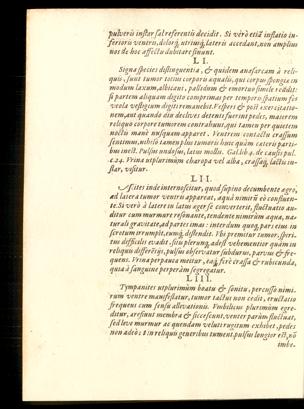 pulveris instar sal referentis decidit. Si verò etiā inflatio in-
ferioris ventris, dolorq́; utriusq́; lateris accedant, non amplius
nos de hoc affectu dubitare sinunt.
LI.
Signa species distinguentia, & quidem anasarcam à reli-
quis, sunt tumor totius corporis aqualis, qui corpus spongia in
modum laxum, albicat, pallidum & emortuo simile reddit:
si partem aliquam digito comprimas per temporis spatium fo-
veola vestigium digiti remanebit. Vesperi & post exercitatio-
nem, aut quando diu declives detenti fuerint pedes, maiorem
reliquo corpore tumorem contrahunt, qui tamen per quietem
noctu manè nusquam apparet. Ventrem contactu crassum
sentimus, nihilo tamen plus tumoris huic quàm cæteris parti-
bus inest. Pulsus undosus, latus mollis. Gal. lib. 4. de causis pul.
c. 24. Vrina utplurimùm charopa vel alba, crassaq́; lactis in-
star, visitur.
LII.
Ascites inde internoscitur, quod supino decumbente ægro,
ad latera tumor ventris appareat, aquâ nimirū eò confluen-
te. Si verò à latere in latus æger se converterit, fluctuatio au-
ditur cum murmure resonante, tendente nimirùm aqua, na-
turali gravitate, ad partes imas: interdum quoq́; pars eius in
scrotum irrumpit, eumq́; distendit. Vbi premitur tumor, spiri-
tus difficilis evadit. situ plerunq́; adest vehementior quàm in
reliquis differētijs, pulsus observatur subdurus, parvus & fre-
quens. Vrina perpauca mittitur, eaq́; ferè crassa & rubicunda,
quia à sanguine perperàm segregatur.
LIII.
Tympanites utplurimùm boatu & sonitu, percusso nimi-
rum ventre manifestatur, tumor tactus non cedit, eructatio
frequens cum sensu allevationis. Vmbilicus plurimùm egre-
ditur, artus membra & siccescunt, venter parùm fluctuat,
sed leve murmur ac quendam veluti rugitum exhibet, pedes
non adeò: t in reliquis generibus tument. pulsus longior est, nō
imbe-